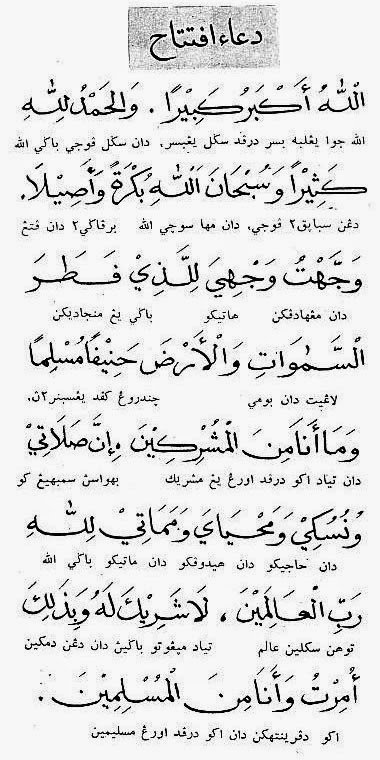 دعاء افتتاح
اَللّٰهُ أَكْبَرُ كَبِيْرًا . وَالْحَمْدُ لِلّٰهِ
الله جوا يڠلبه بسر درفد سكل يڠبسر، دان سكل ڤوجي باڬي الله
كَثِيْرًا وَسُبْحَانَ اللّٰهِ بُكْرَةً وَأَصِيْلًا.
دڠن سباڽق٢ ڤوجي، دان مها سوچي الله
وَجَّهْتُ وَجْهِيَ لِلَّذِيْ فَطَرَ
دان مڠهادڤكن هاتيكو باڬي يڠ منجاديكن
السَّمٰوَاتِ وَالْأَرْضَ حَنِيْفًا مُسْلِمًا
لاڠيت دان بومي چندروڠ كفد
وَمَا أَنَا مِنَ الْمُشْرِكِيْنَ . إِنَّ صَلَاتِيْ
دان تياد اكو درفد اورڠ يڠ مشريك بهواسڽ سمبهيڠ كو
وَنُسُكِيْ وَمَحْيَايَ وَمَمَاتِيْ لِلّٰهِ
دان حاجيكو دان هيدوڤكو دان ماتيكو باڬي الله
رَبِّ الْعَالَمِيْنَ ، لَا شَرِيْكَ لَهُ وَبِذٰلِكَ
توهن سكلين عالم تياد ميڤوتو باڬيڽ دان دڠن دمكين
أُمِرْتُ وَأَنَا مِنَ الْمُسْلِمِيْنَ .
اكو دڤرينتهكن دان اكو درفد اورڠ مسليمين